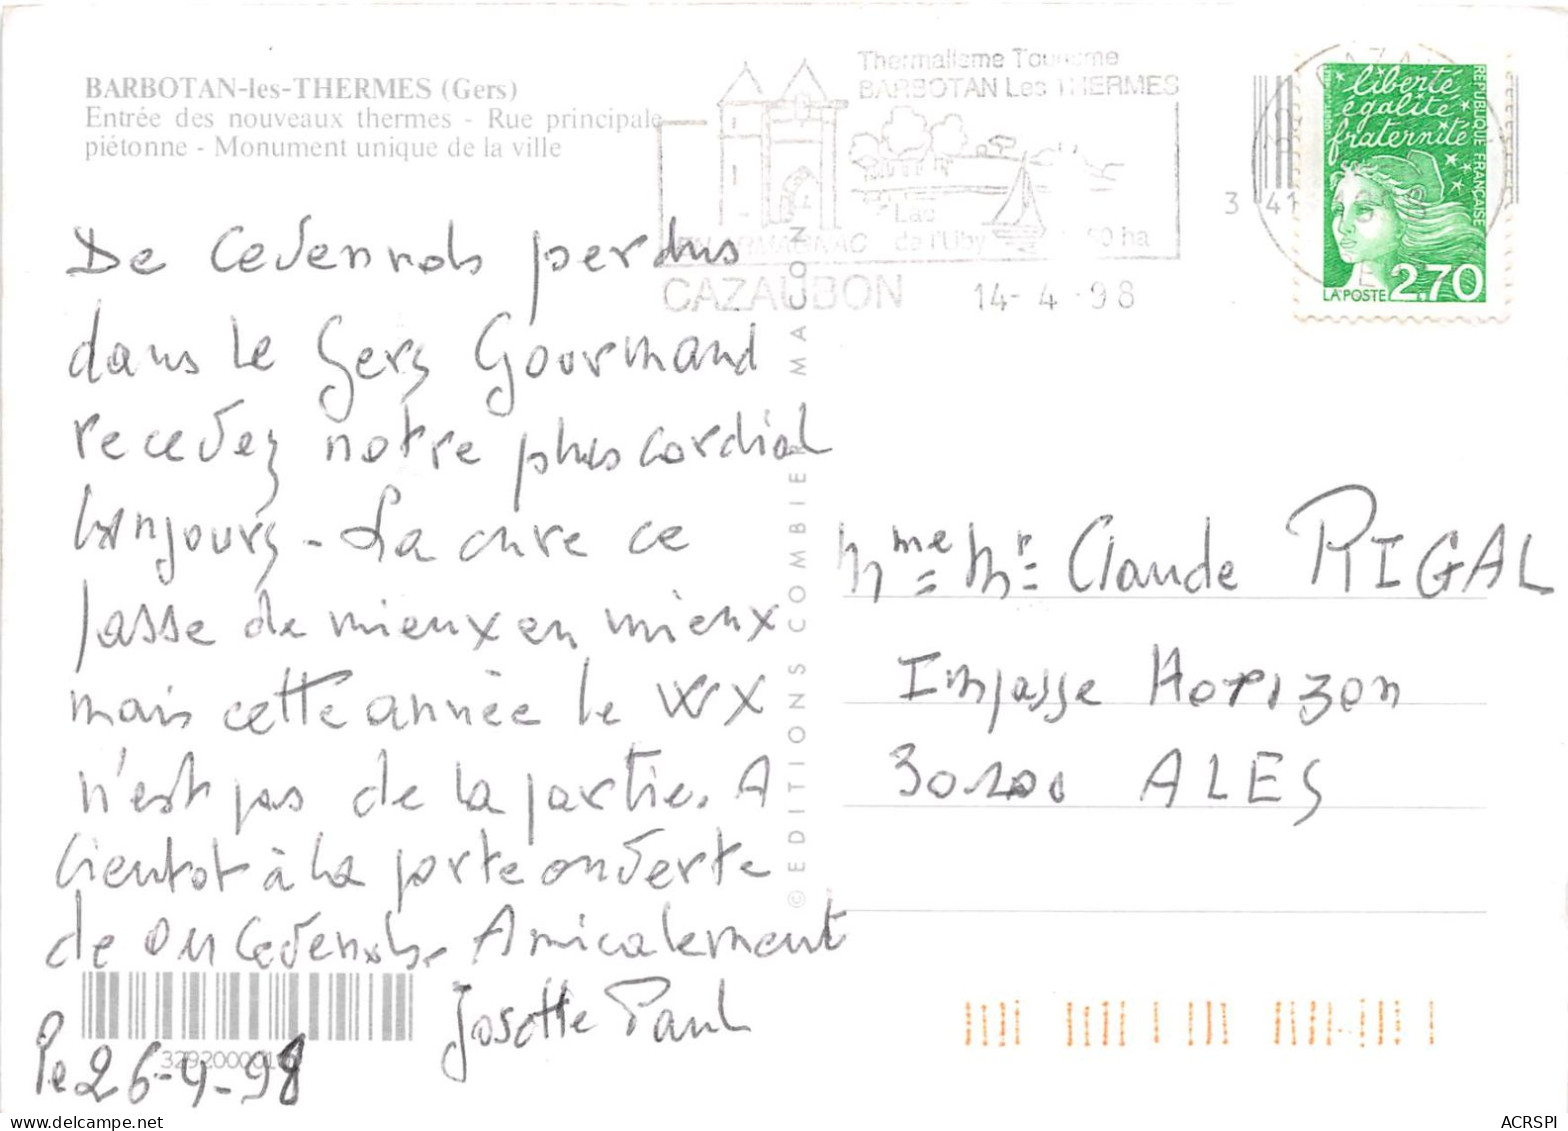 BARBOTAN-les-THERMES (Gers)
Entrée des nouveaux thermes - Rue principale
piétonne - Monument unique de la ville
Thermalisme Tourisme
BARBOTAN Les THERMES
EN ARMAGNAC
Lac
de l'Uby
60 ha
CAZAUBON 14-4-98
3 41
liberté
égalité
fraternité
REPUBLIQUE FRANÇAISE
LA POSTE 2,70
De Cevennols perdus
dans le Gers Gourmand
recevez notre plus cordial
bonjours - La cure ce
passe de mieux en mieux
mais cette année le
n'est pas de la partie. A
bientot à la porte ouverte
de Cevennols. Amicalement
Josette Paul
26-4-98
32920000
© EDITIONS COMBIER MACON
Mme Mr Claude RIGAL
Impasse Horizon
30200 ALES
ACRSPI